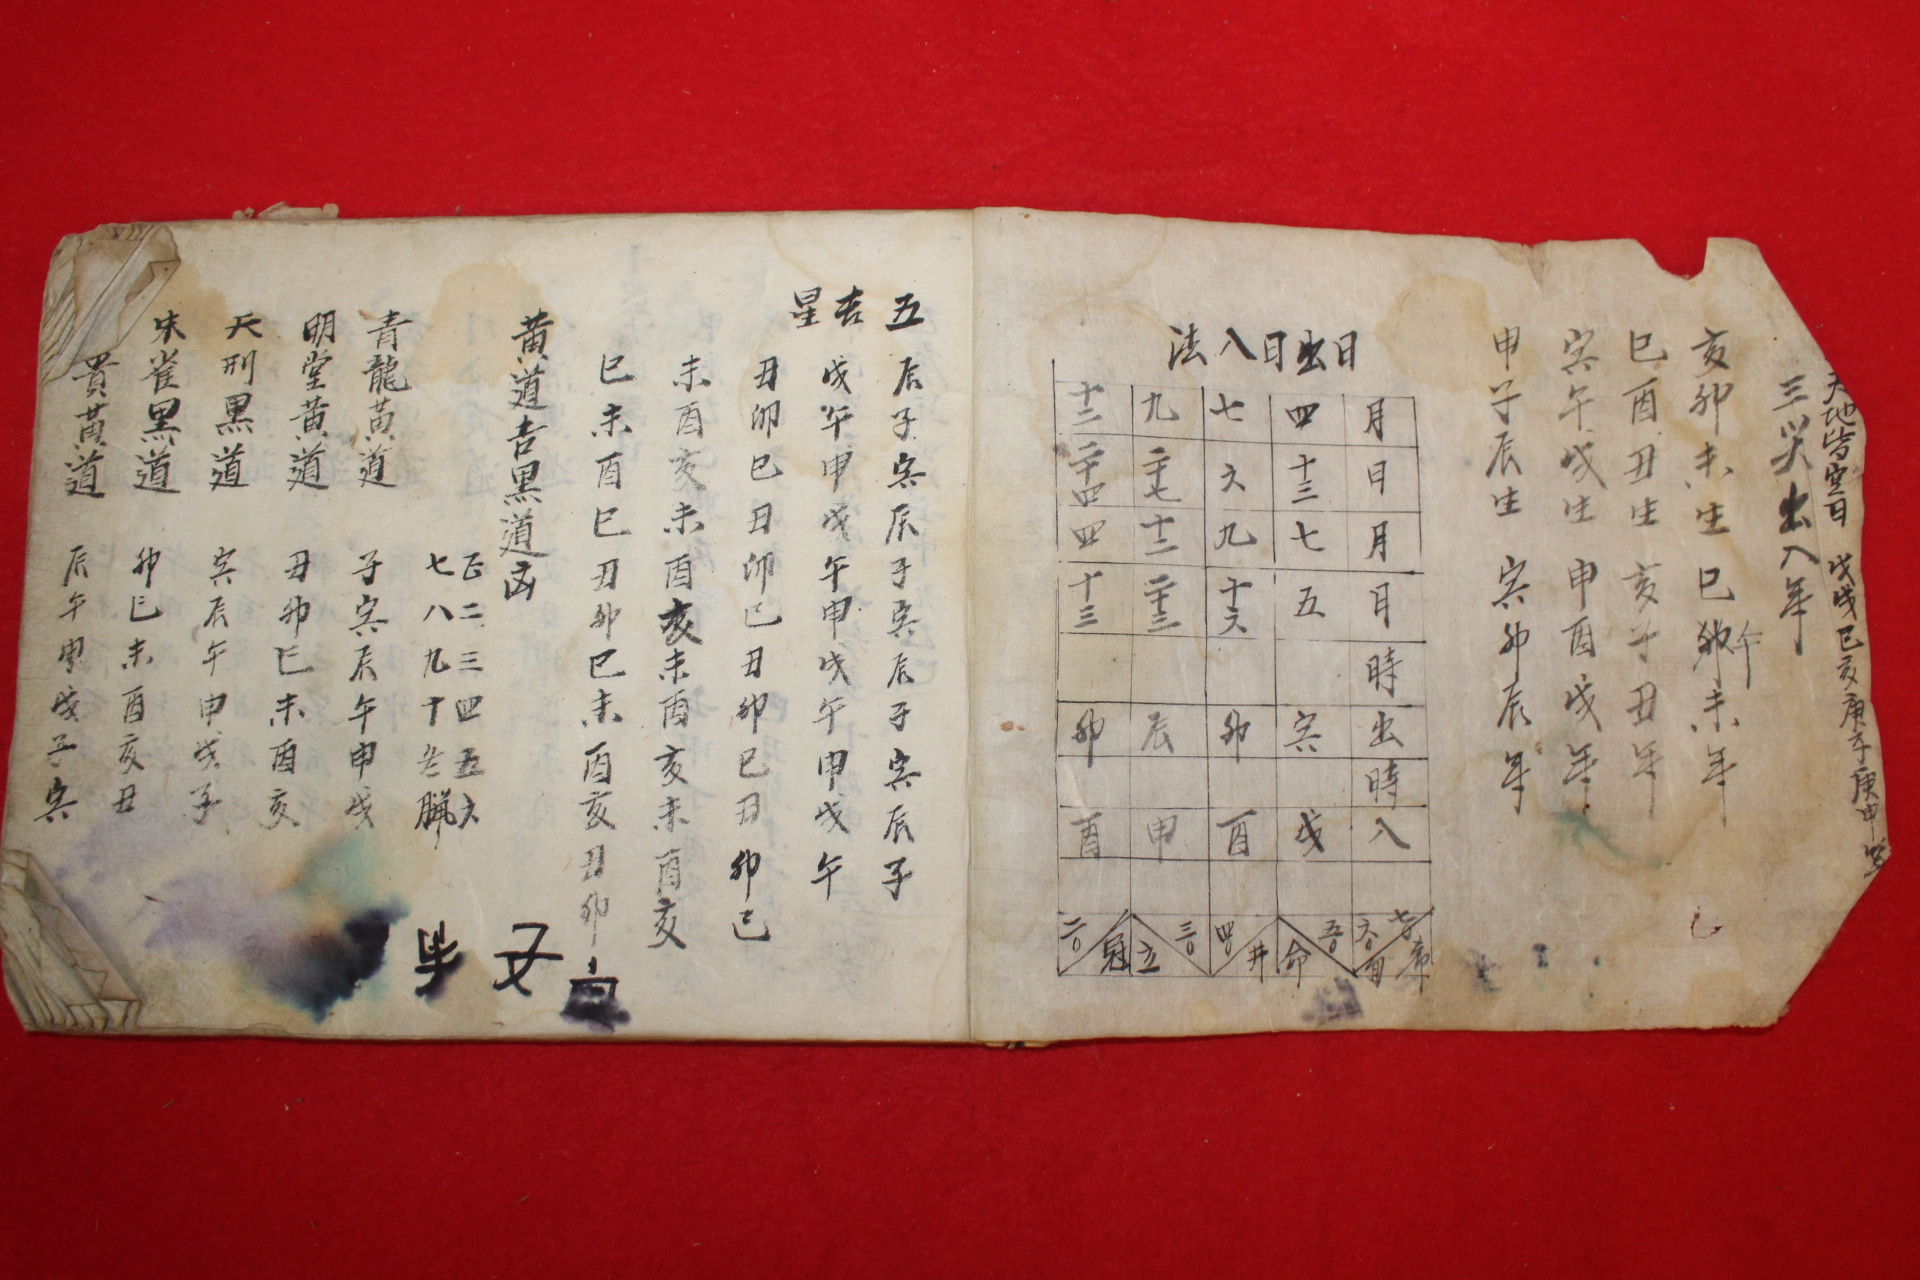 天地皆空日 戊戌己亥庚子庚申
三災出入年
亥卯未生 巳午未年
巳酉丑生 亥子丑年
寅午戌生 申酉戌年
申子辰生 寅卯辰年
日出日入法
月 日 月 日 時 出 時 入
四 十三 七 五 寅 戌
七 六 九 十六 卯 酉
九 二十七 十二 二十三 辰 申
十二 二十四 四 十三 卯 酉
五 辰子寅辰子寅辰子寅辰子
吉 戌午申戌午申戌午申戌午
星 丑卯巳丑卯巳丑卯巳丑卯巳
未酉亥未酉亥未酉亥未酉亥
巳未酉巳丑卯巳未酉亥丑卯
黃道吉黑道凶
正二三四五六
七八九十至臘
青龍黃道 子寅辰午申戌
明堂黃道 丑卯巳未酉亥
天刑黑道 寅辰午申戌子
朱雀黑道 卯巳未酉亥丑
貴黃道 辰午申戌子寅